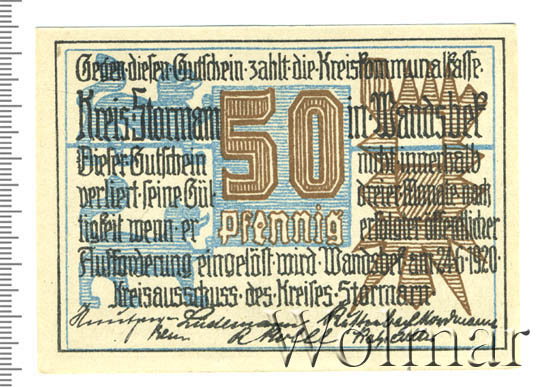 Gegen·diesen·Gutschein·zahlt·die·Kreiskommunalkasse·
Kreis·Stormarn in·Wandsbek
50
Dieser·Gutschein nicht·innerhalb
verliert·seine·Gül dreier·Monate·nach
tigkeit·wenn·er erfolgter·öffentlicher
pfennig
Aufforderung eingelöst·wird·Wandsbek·am·24·6·1920·
Kreisausschuss·des·Kreises·Stormarn
Wolmar